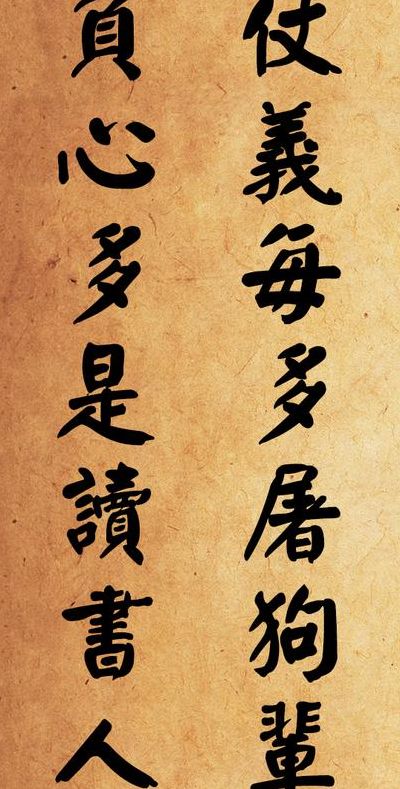 仗義每多屠狗輩
負心多是讀書人